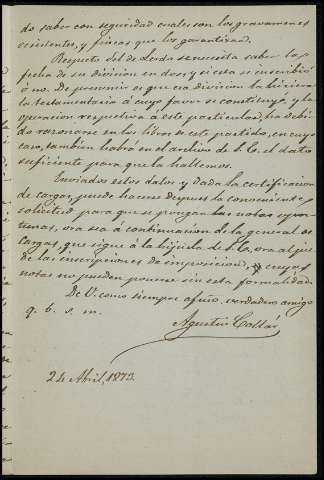 do saber con seguridad cuales son los gravamenes
existentes, y fincas que los garantizan.
Respecto del de Lerda se necesita saber la
fecha de su division en dos; y si esta se inscribió
ó no. De presumir es que esa division la hiciera
la testamentaria á cuyo favor se constituyó, y la
operacion respectiva á este particular, ha debi
do razonarse en los libros de este partido, en cuyo
caso, tambien habrá en el archivo de S. E. el dato
suficiente para que la hallemos.
Enviados estos datos y dada la certificacion
de cargas, puede hacerse despues la conveniente
solicitud para que se pongan las notas oportunas,
ora sea á continuacion de la general de
cargas, que sigue á la hijuela de S. E., ora al pie
de las inscripciones de imposicion, cuyas
notas no pueden ponerse sin esta formalidad.
De V. como siempre afmo. verdadero amigo
q. b. s. m.
Agustin Collar
24 Abril, 1873.